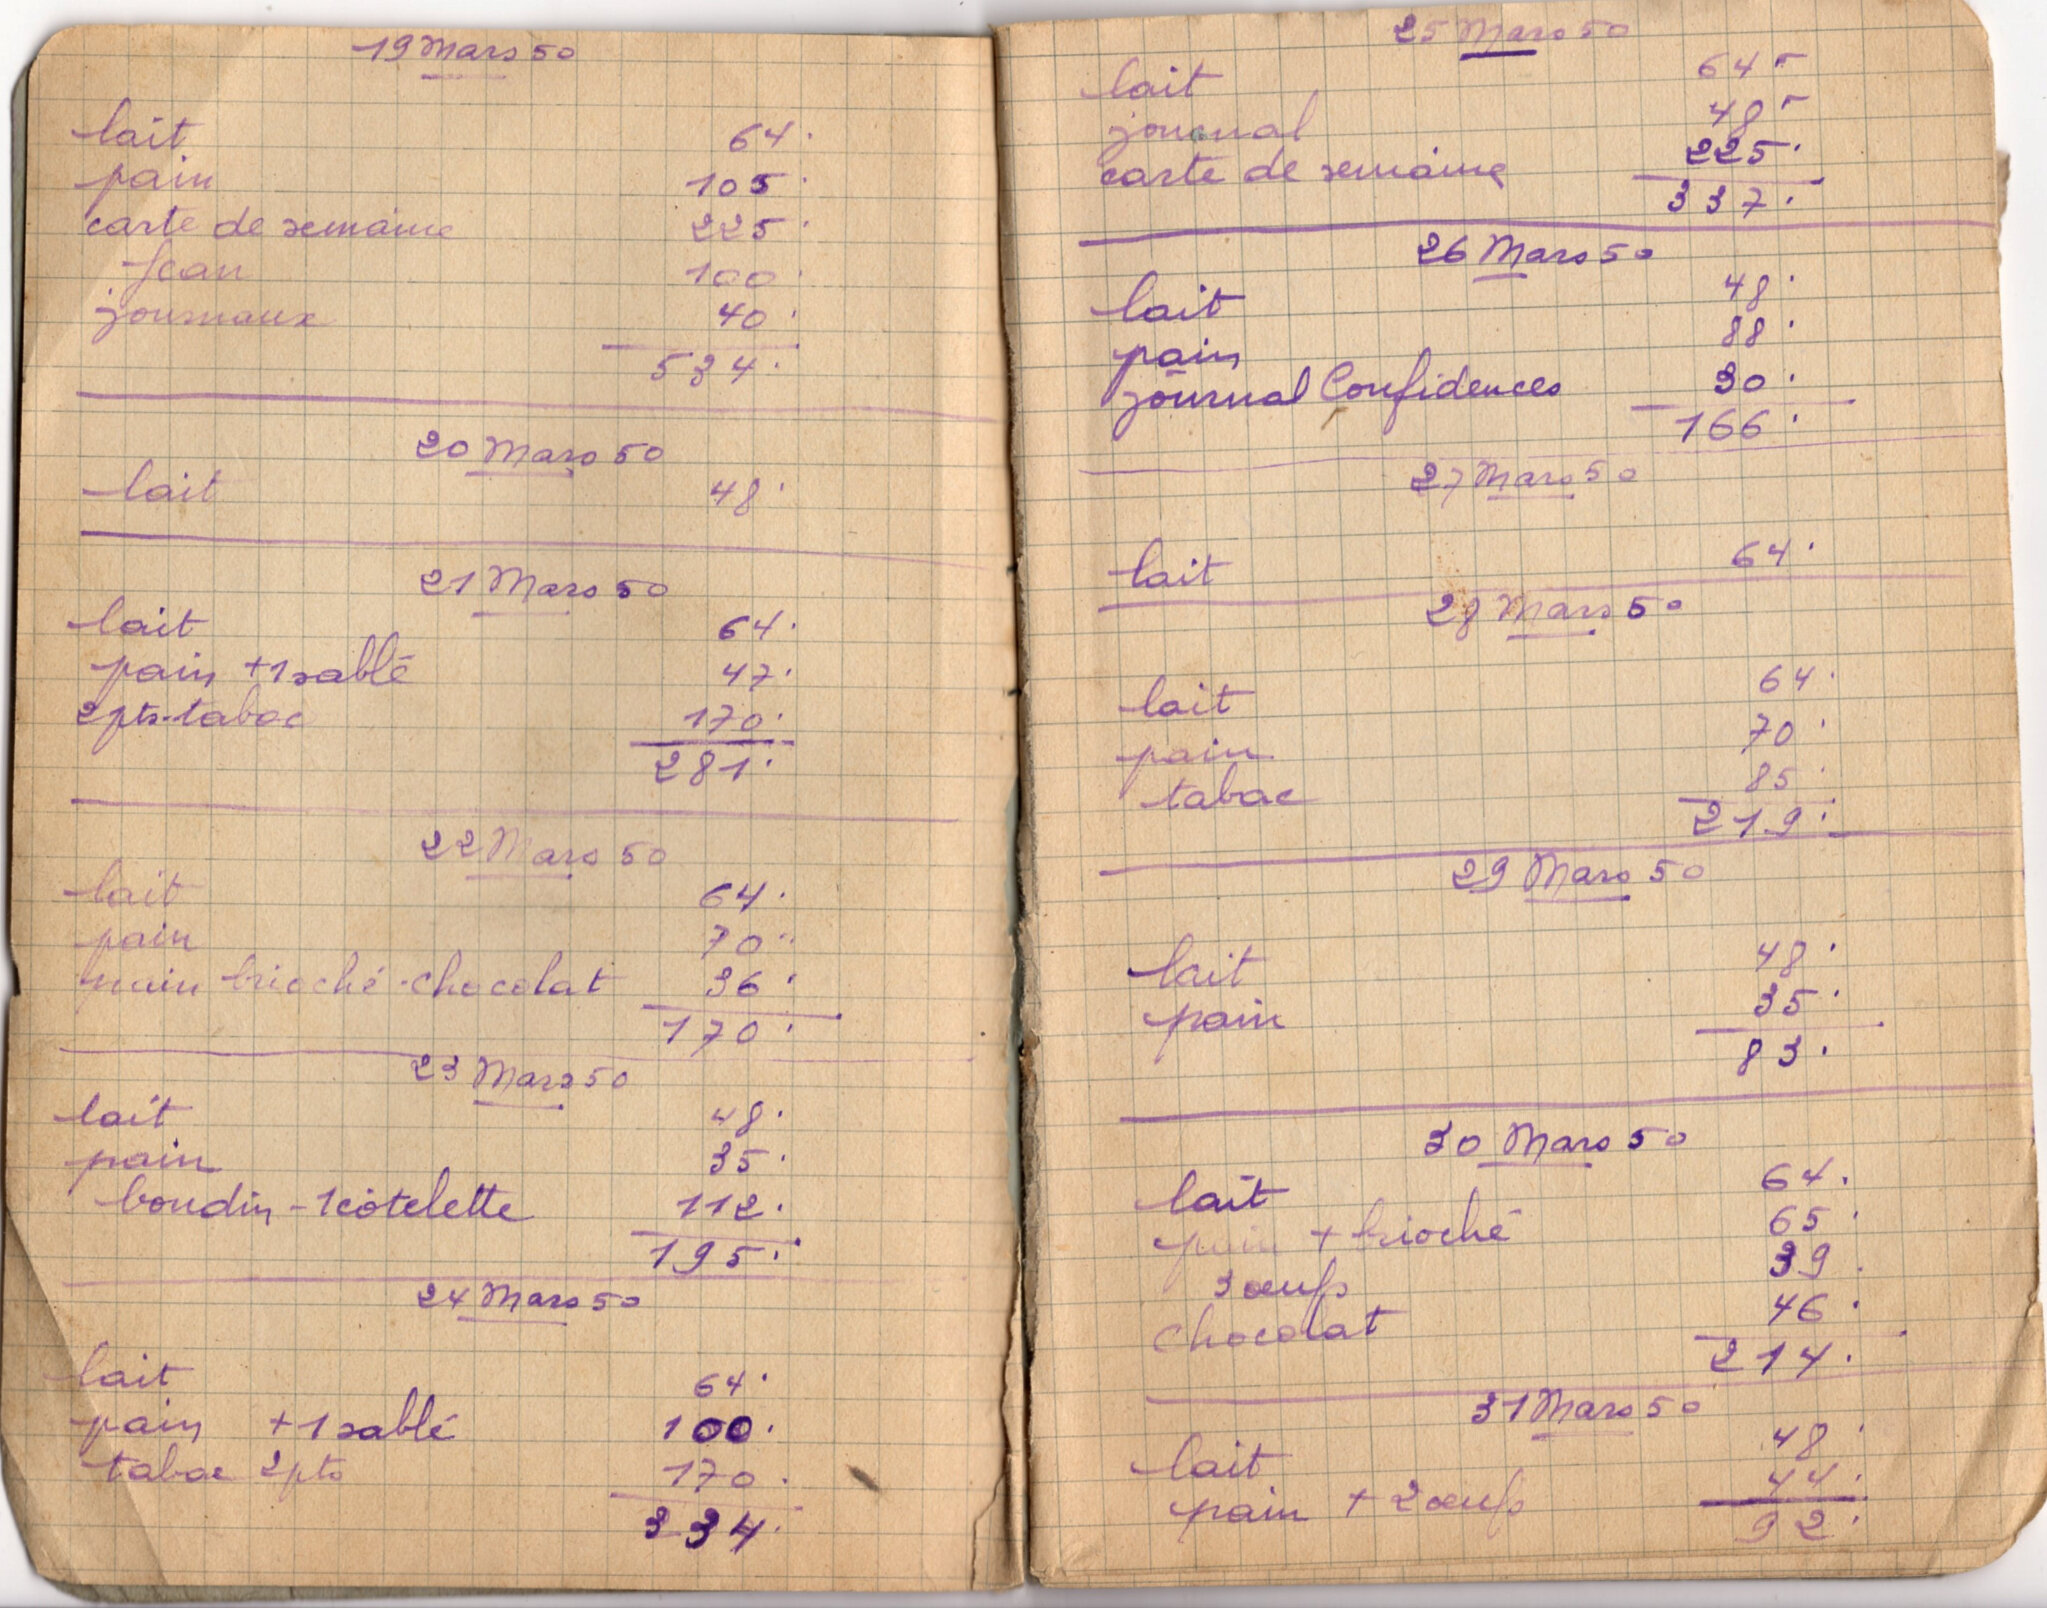 19 Mars 50
lait 64.
pain 105.
carte de semaine 225.
Jean 100.
journaux 40.
534.
20 Mars 50
lait 48.
21 Mars 50
lait 64.
pain + 1 sablé 47.
2 pts-tabac 170.
281.
22 Mars 50
lait 64.
pain 70.
pain brioché-chocolat 36.
170.
23 Mars 50
lait 48.
pain 35.
boudin - 1 côtelette 112.
195.
24 Mars 50
lait 64.
pain + 1 sablé 100.
tabac 2 pts 170.
334.
25 Mars 50
lait 64
journal 48
carte de semaine 225.
337.
26 Mars 50
lait 48.
pain 88.
journal Confidences 30.
166.
27 Mars 50
lait 64.
28 Mars 50
lait 64.
pain 70.
tabac 85.
219.
29 Mars 50
lait 48.
pain 35.
83.
30 Mars 50
lait 64.
pain + brioché 65.
3 œufs 39.
chocolat 46.
214.
31 Mars 50
lait 48.
pain + 2 œufs 44.
92.